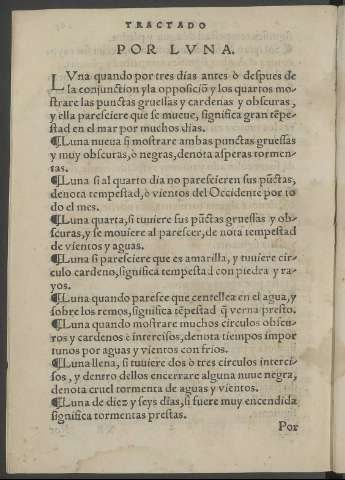 TRACTADO
POR LVNA.
LVna quando por tres dias antes ò despues de
la conjunction y la opposiciõ y los quartos mo-
strare las punctas gruessas y cardenas y obscuras,
y ella paresciere que se mueue, significa gran tẽpe-
stad en el mar por muchos dias.
¶Luna nueua si mostrare ambas punctas gruessas
y muy obscuras, ò negras, denota asperas tormen-
tas.
¶Luna si al quarto dia no parescieren sus pũctas,
denota tempestad, ò vientos del Occidente por to
do el mes.
¶Luna quarta, si tuuiere sus pũctas gruessas y ob-
scuras, y se mouiere al parescer, de nota tempestad
de vientos y aguas.
¶Luna si paresciere que es amarilla, y tuuiere cir-
culo cardeno, significa tempestad con piedra y ra-
yos.
¶Luna quando paresce que centellea en el agua, y
sobre los remos, significa tẽpestad q̃ verna presto.
¶Luna quando mostrare muchos circulos obscu-
ros y cardenos è intercisos, denota tiempos impor
tunos por aguas y vientos con frios.
¶Luna llena, si tuuiere dos ò tres circulos interci-
sos, y dentro dellos encerrare alguna nuue negra,
denota cruel tormenta de aguas y vientos.
¶Luna de diez y seys dias, si fuere muy encendida
significa tormentas prestas.
Por